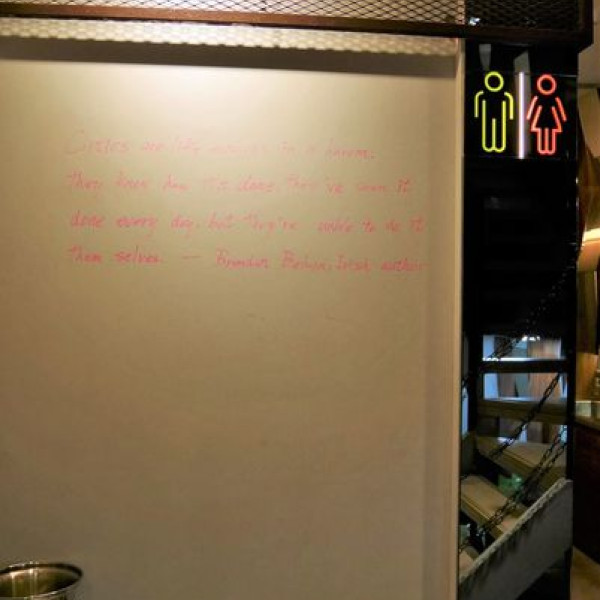 are like in a harem;
they know how it's done they've seen it
done every day, but they're unable to do it
them selves. — Brendan Behan, Irish author